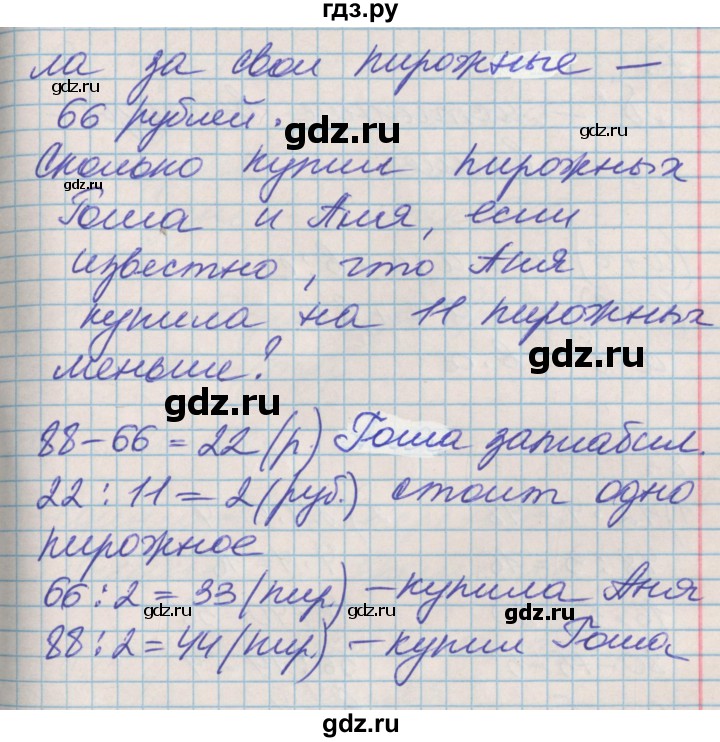 гдз.ру
ла за свои пирожные —
66 рублей.
Сколько купили пирожных
Гоша и Аня, если
известно, что Аня
купила на 11 пирожных
меньше?
88-66=22(р.) Гоша заплабил.
22:11=2(руб.) стоит одно
пирожное
66:2=33(пир.) —купила Аня
88:2=44(пир.) —купил Гоша
gdz.ru
gdz.ru
gdz.ru
gdz.ru
gdz.ru
gdz.ru
gdz.ru
gdz.ru
gdz.ru
gdz.ru
gdz.ru
gdz.ru